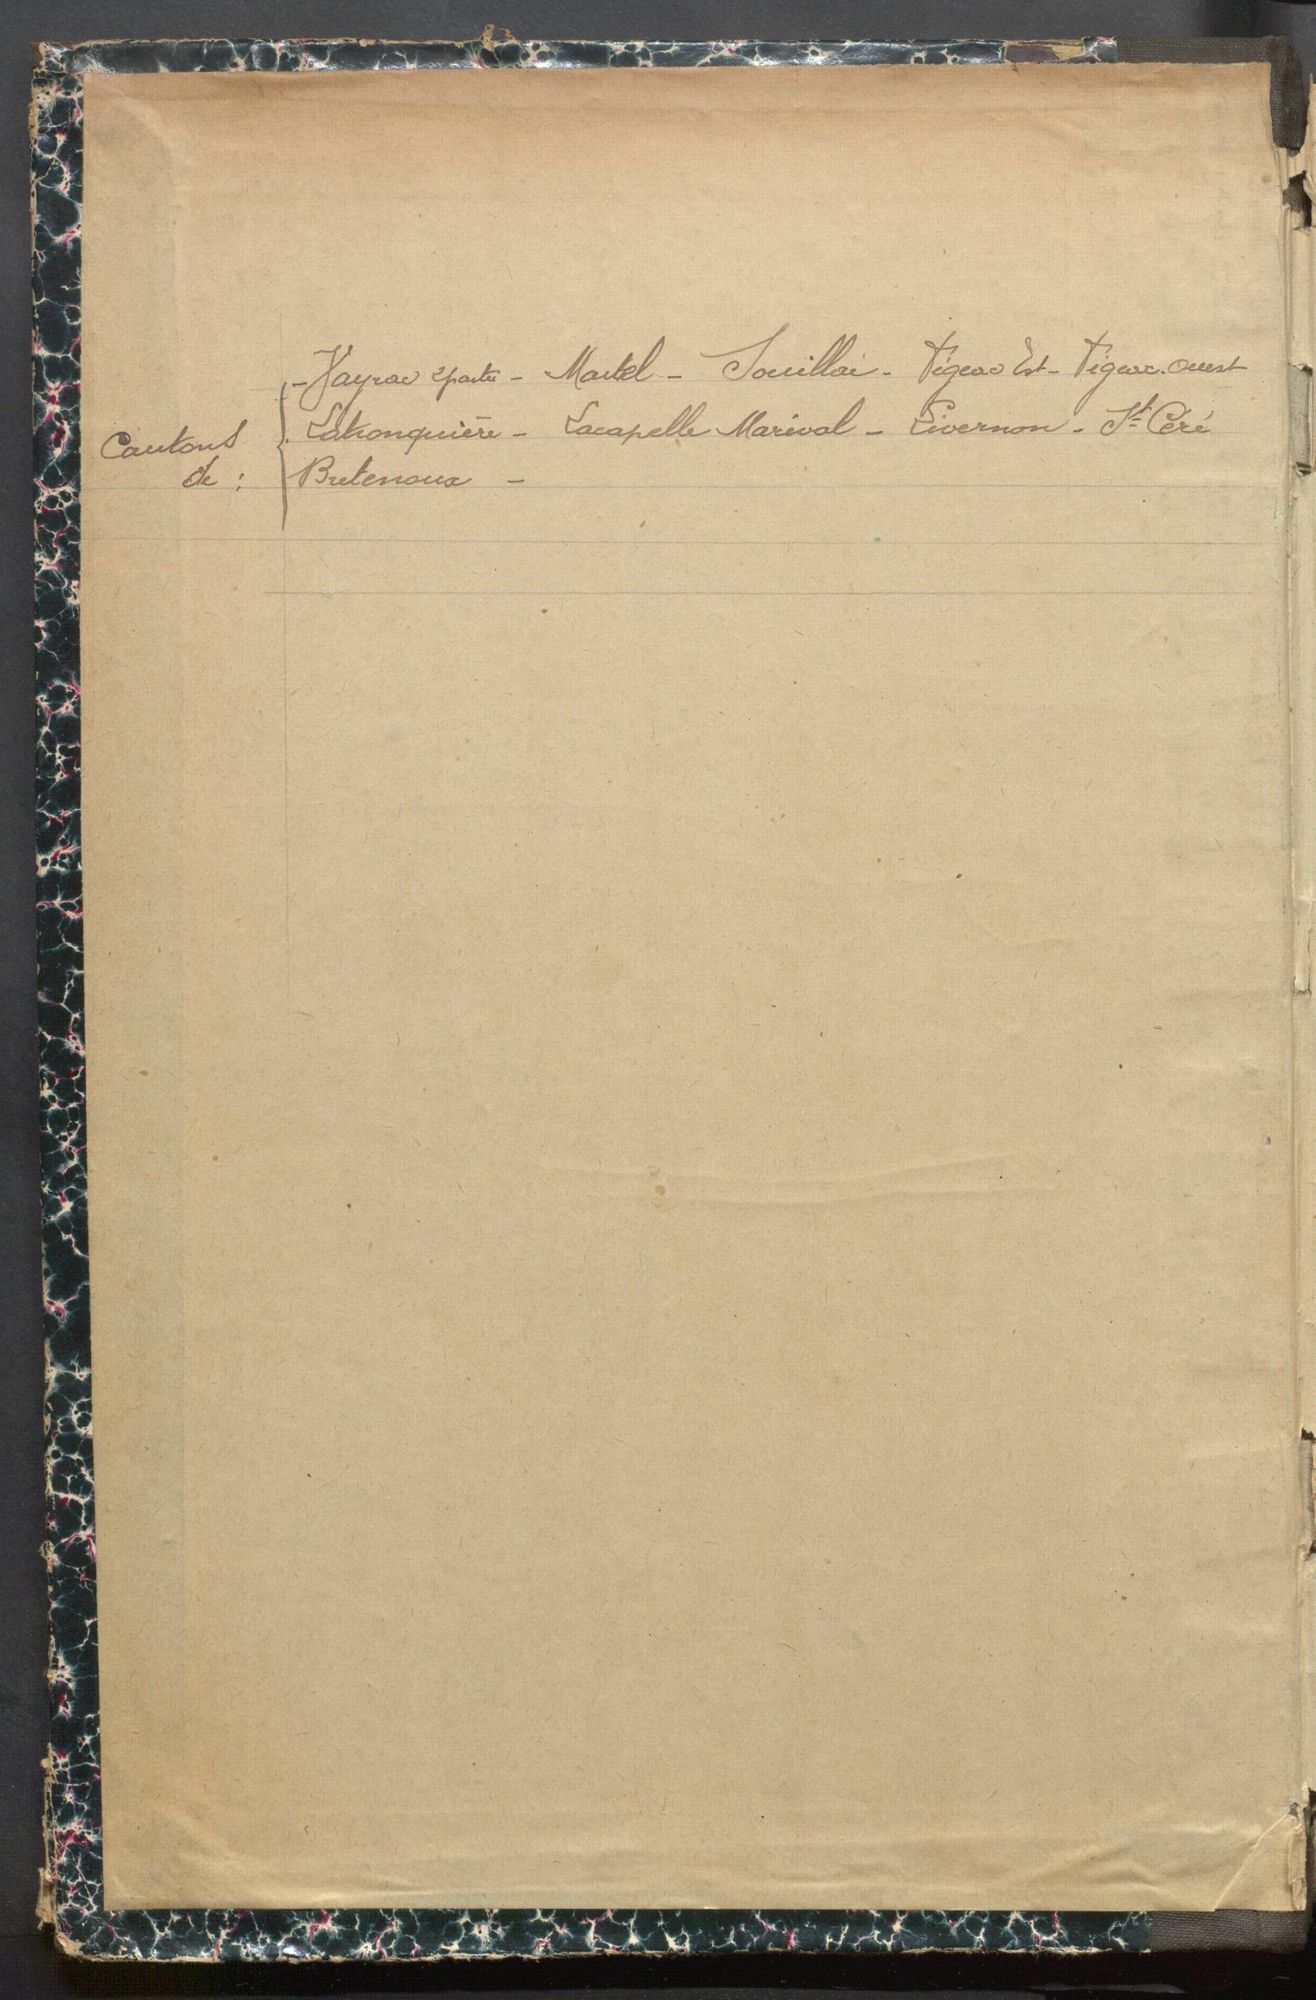 - Vayrac 2partie - Martel - Souillac - Figeac Est - Figeac. Ouest
Cantons Latronquière - Lacapelle Marival - Livernon - St Céré
de : Bretenoux -